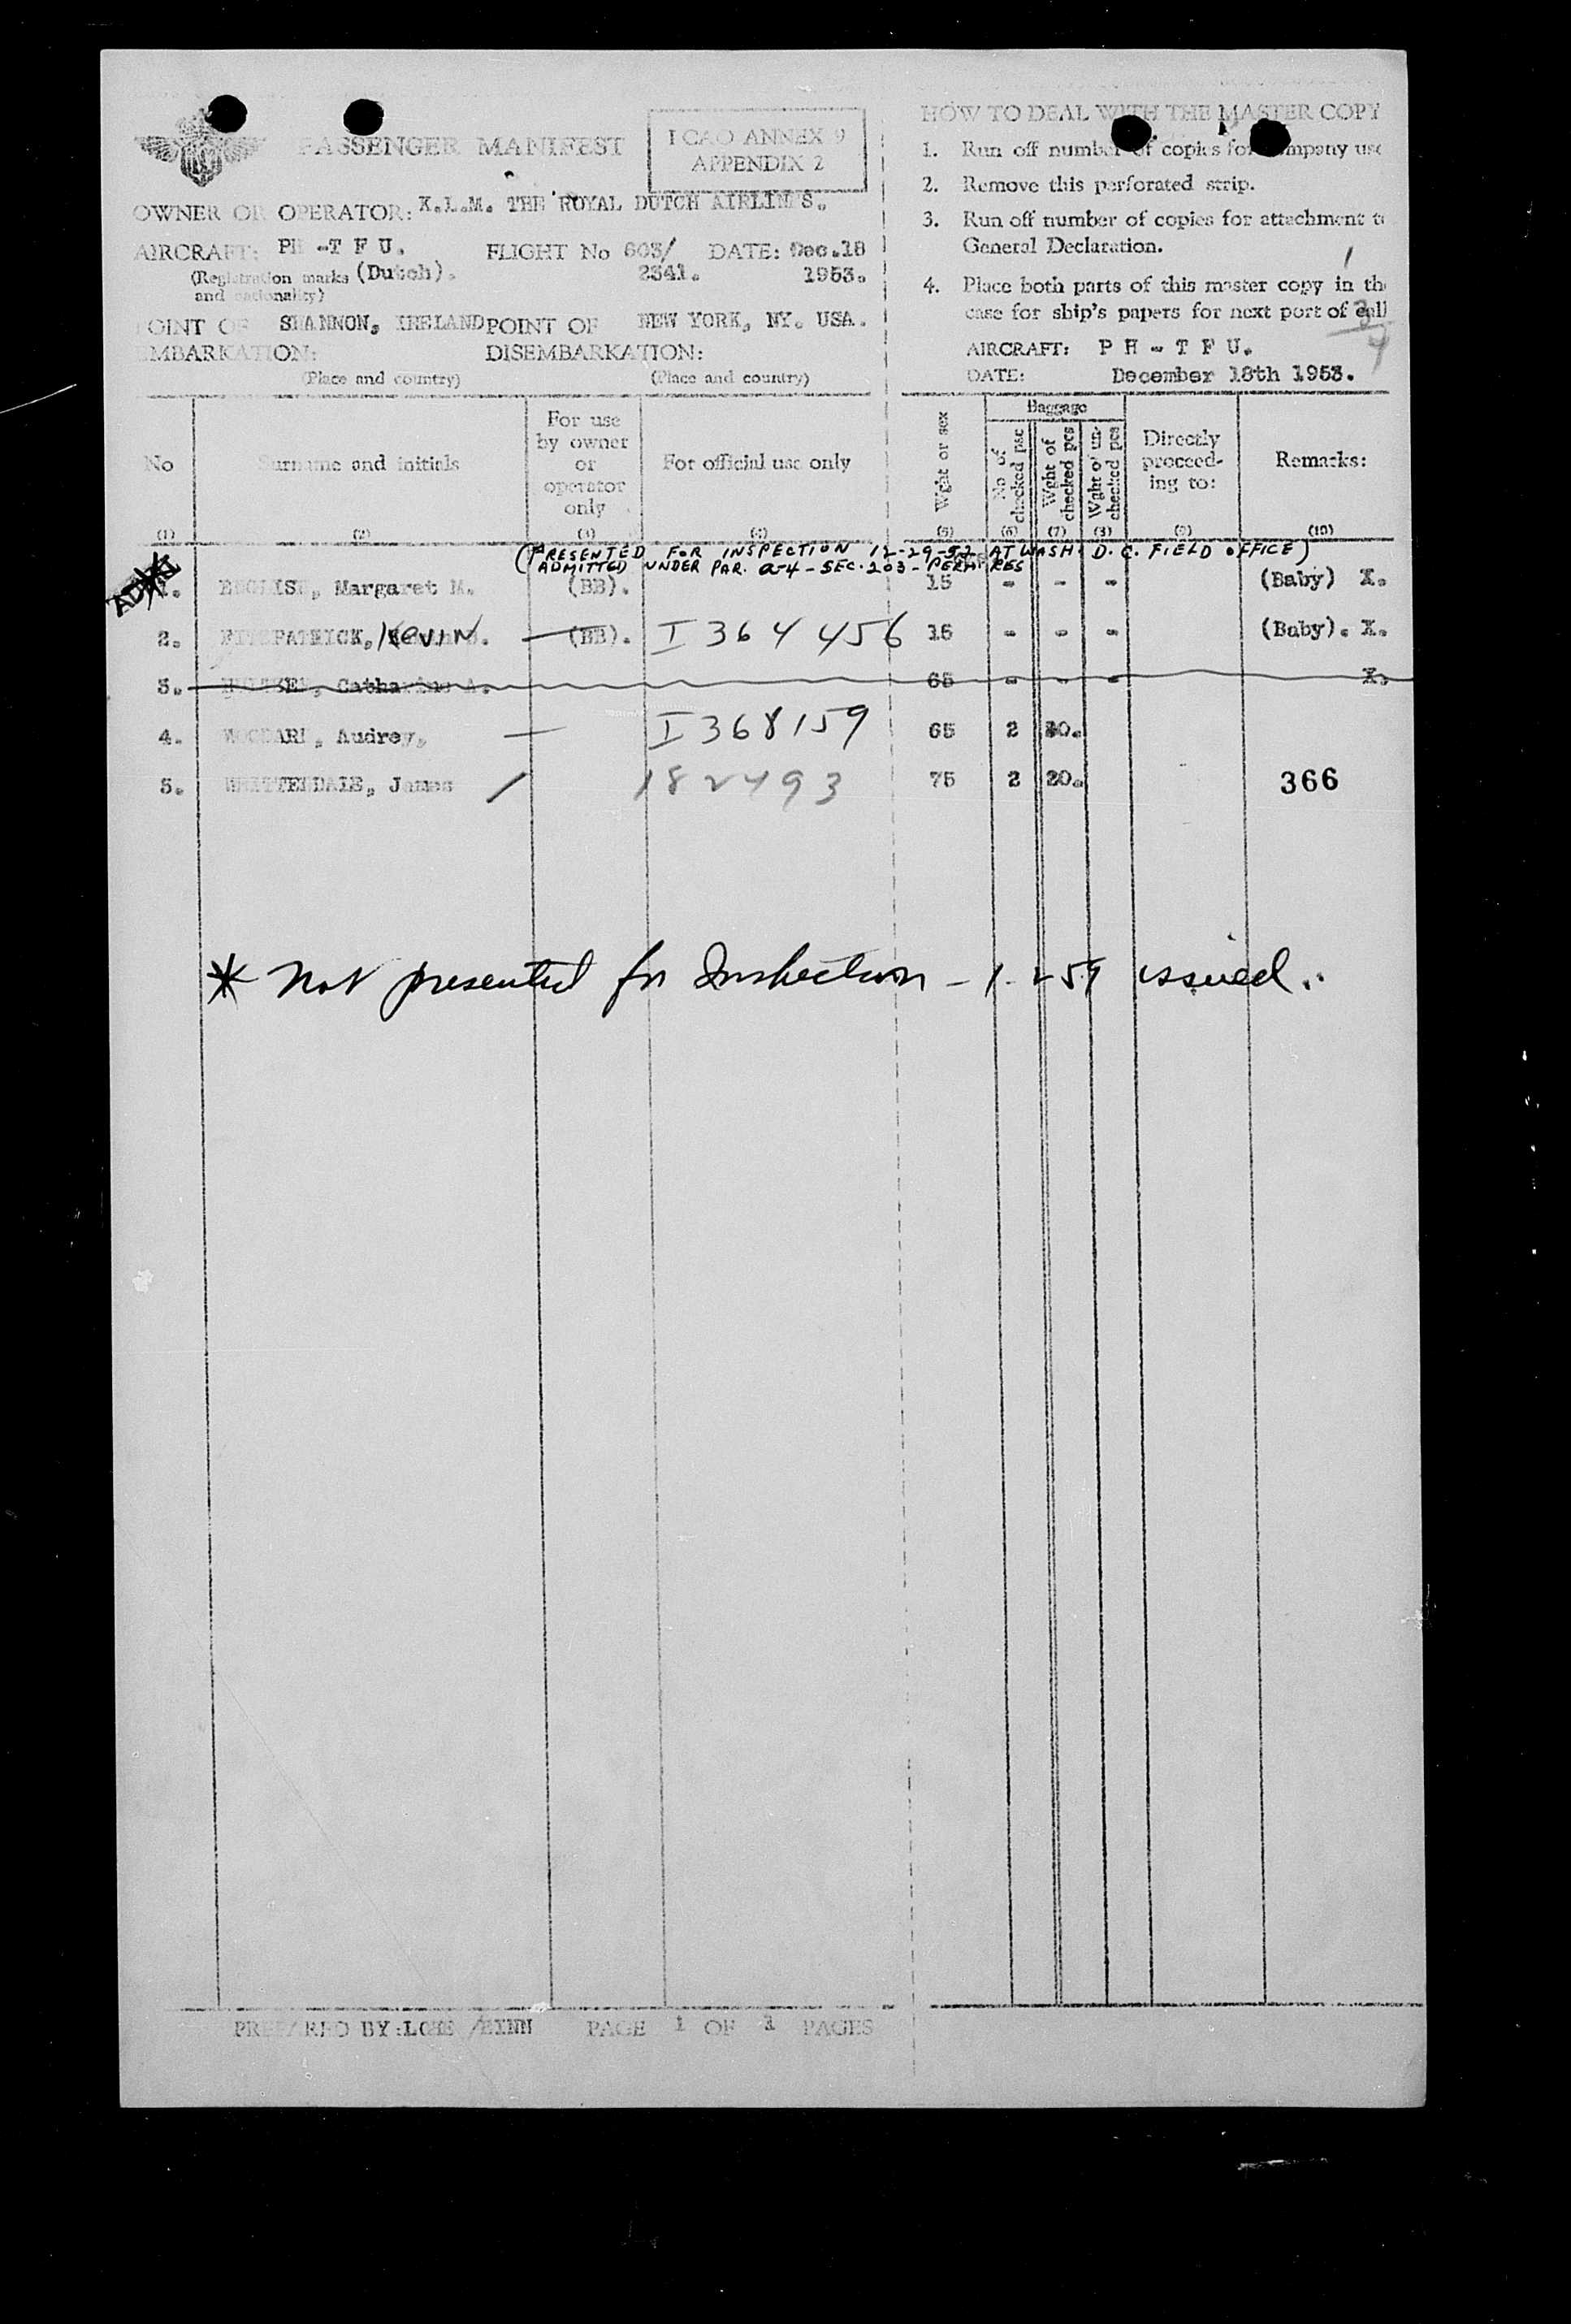 PASSENGER MANIFEST
I CAO ANNEX 9
APPENDIX 2
OWNER OR OPERATOR: K.L.M. THE ROYAL DUTCH AIRLINES.
AIRCRAFT: PH -T F U. FLIGHT No 603/ DATE: Dec.18
(Registration marks (Dutch). 2341. 1953.
and nationality)
POINT OF SHANNON, IRELAND POINT OF NEW YORK, NY. USA.
EMBARKATION: DISEMBARKATION:
(Place and country) (Place and country)
HOW TO DEAL WITH THE MASTER COPY
1. Run off number of copies for company use
2. Remove this perforated strip.
3. Run off number of copies for attachment to
General Declaration.
4. Place both parts of this master copy in the
case for ship's papers for next port of call
1
3/4
AIRCRAFT: P H - T F U.
DATE: December 18th 1953.
No
(1)
Surname and initials
(2)
For use
by owner
or
operator
only
(3)
For official use only
(4)
Wght or sex
(5)
Baggage
No of
checked pcs
(6)
Wght of
checked pcs
(7)
Wght of un-
checked pcs
(8)
Directly
proceed-
ing to:
(9)
Remarks:
(10)
(PRESENTED FOR INSPECTION 12-29-53 AT WASH. D. C. FIELD OFFICE)
ADMITTED UNDER PAR. a-4 - SEC. 203 - PERM RES
1. Margaret M. (BB). 15 - - - (Baby) X.
2. FITZPATRICK, KEVIN (BB). I 364 456 15 - - - (Baby). X.
3. Catharine A. 65 - - - X.
4. Audrey, I 368159 65 2 20.
5. James 182493 75 2 20. 366
* Not presented for Inspection - I-259 issued.
PREPARED BY: PAGE 1 OF 1 PAGES